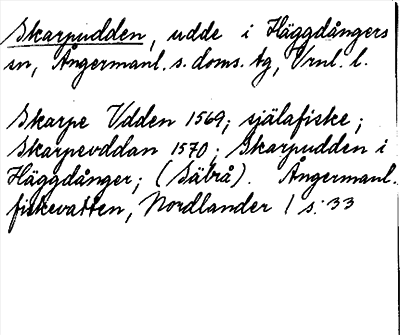 Skarpudden, udde i Häggdångers
sn, Ångermanl. s. doms. tg, Vrnl. l.
Skarpe Vdden 1569; själafiske;
Skarpevddan 1570; Skarpudden i
Häggdånger; (Säbrå). Ångermanl.
fiskevatten, Nordlander 1 s. 33